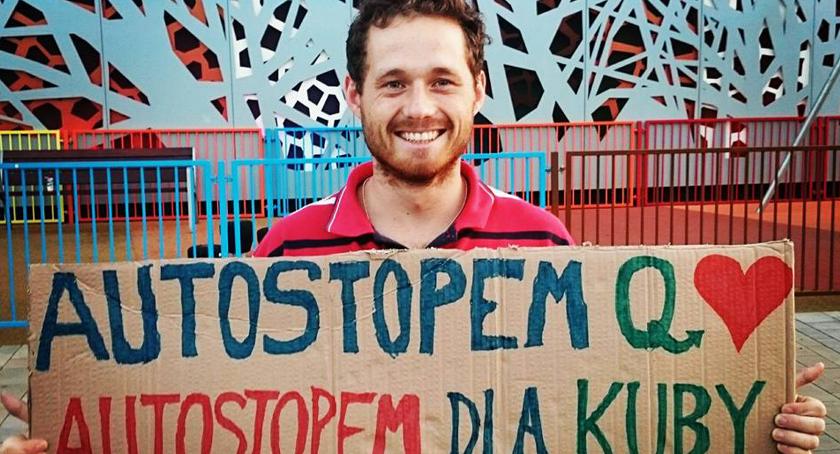 AUTOSTOPEM Q
AUTOSTOPEM DLA KUBY